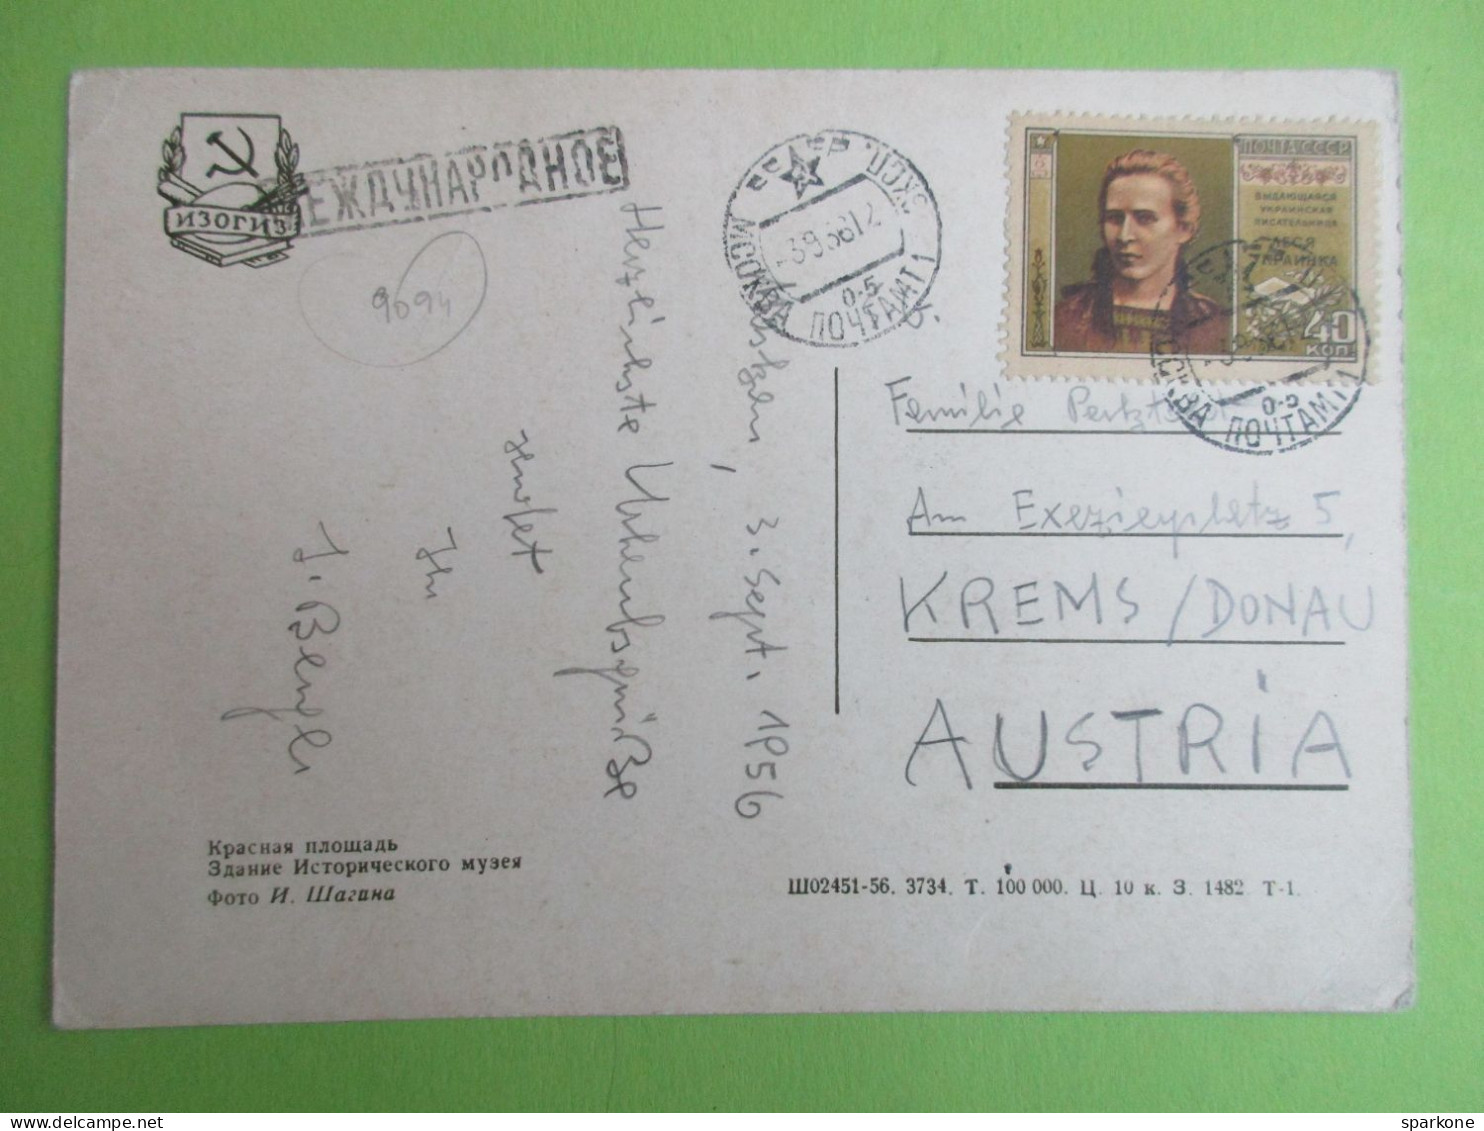 ИЗОГИЗ
МЕЖДУНАРОДНОЕ
9694
СССР
3 9 56 12
МОСКВА ПОЧТАМТ 1
0-5
ПОЧТА СССР
ВЫДАЮЩАЯСЯ
УКРАИНСКАЯ
ПИСАТЕЛЬНИЦА
ЛЕСЯ
УКРАИНКА
40
КОП
МОСКВА ПОЧТАМТ 1
0-5
3. Sept. 1956
Herzlichste Urlaubsgrüße
Ihr
Familie
Am Exezierplatz 5,
KREMS / DONAU
AUSTRIA
Красная площадь
Здание Исторического музея
Фото И. Шагина
Ш02451-56. 3734. Т. 100 000. Ц. 10 к. З. 1482 Т-1.
sparkone